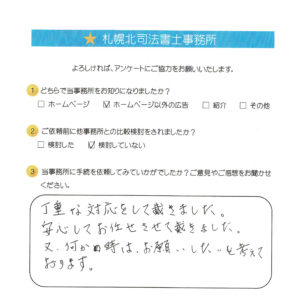 ★ 札幌北司法書士事務所
よろしければ、アンケートにご協力をお願いいたします。
1 どちらで当事務所をお知りになりましたか?
□ ホームページ ☑ ホームページ以外の広告 □ 紹介 □ その他
2 ご依頼前に他事務所との比較検討をされましたか?
□ 検討した ☑ 検討していない
3 当事務所に手続を依頼してみていかがでしたか?ご意見やご感想をお聞かせ
ください。
丁重な対応をして戴きました。
安心してお任せさせて戴きました。
又、何か有時は、お願いしたいと考えて
おります。